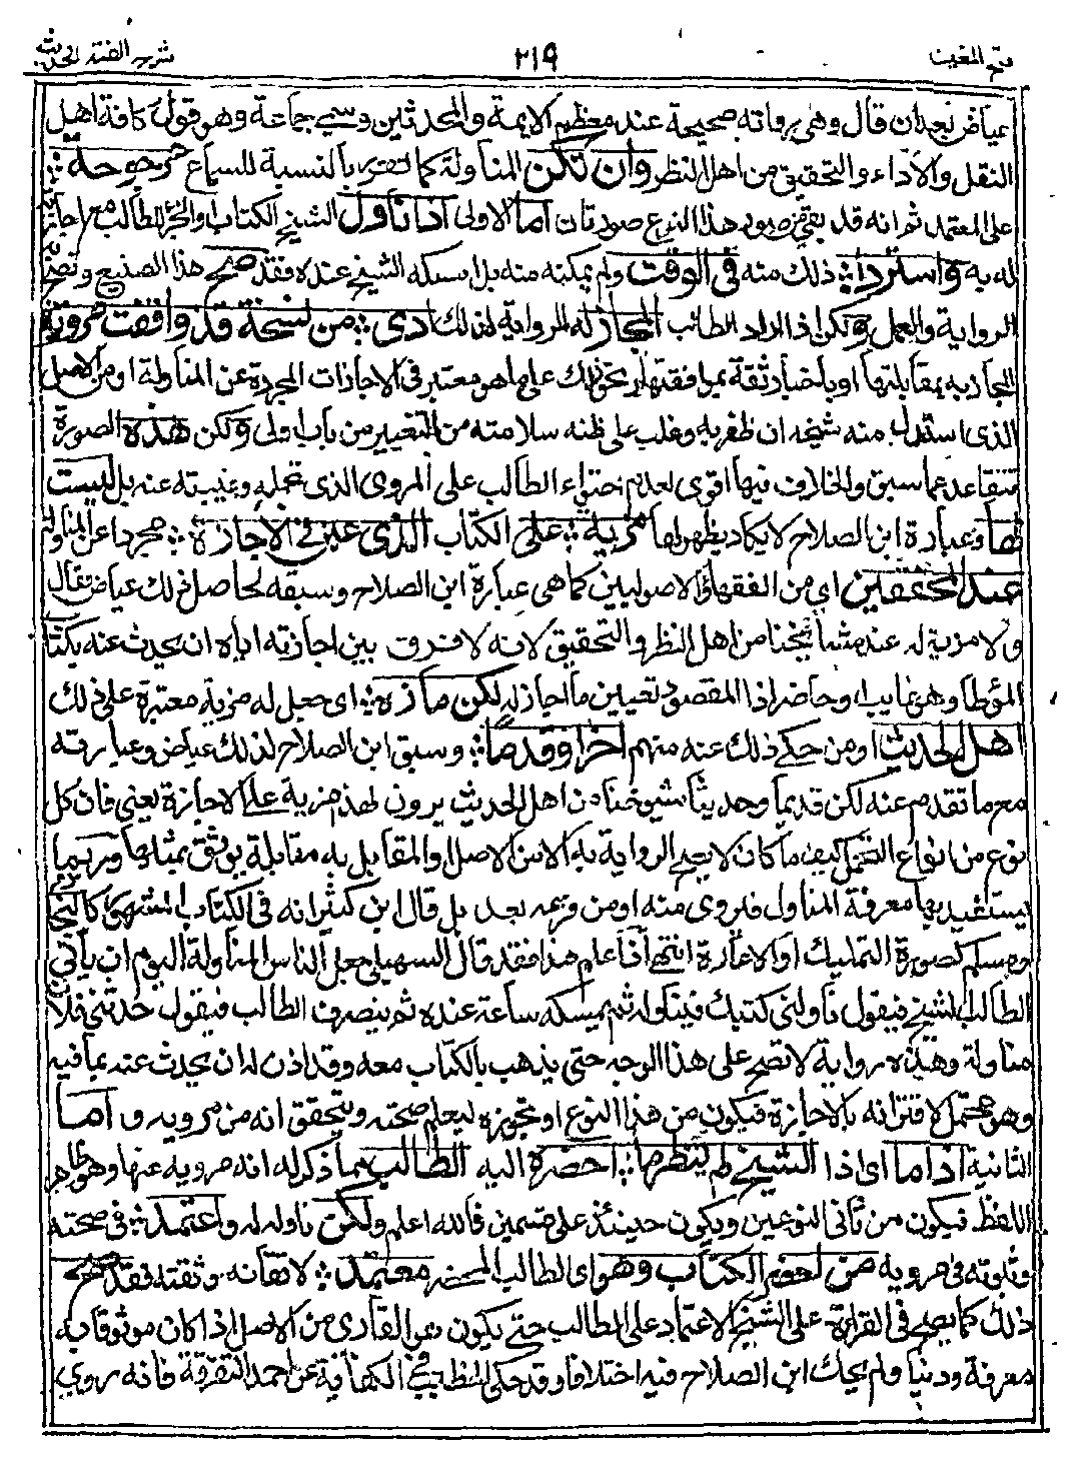 فتح المغيث ٢١٩ شرح الفية الحديث
عياض بعد ان قال وهى رواية صحيحة عند معظم الايمة والمحدثين وسمى جماعة وهو قول كافة اهل
النقل والأداء والتحقيق من اهل النظر وان تكن المناولة كما تقرر بالنسبة للسماع مرجوحة
على المعتمد ثم انه قد بقى من صور هذا النوع صورتان اما الاولى اذا ناول الشيخ الكتاب او الجزء للطالب مع اجازته
له به واسترد ذلك منه فى الوقت ولم يمكنه منه بل امسكه الشيخ عنده فقد صح هذا الصنيع وتصح
الرواية والعمل به ولكن اذا اراد الطالب المجاز له الرواية لذلك ادى من نسخة قد وافقت مرويه
المجاز به بمقابلتها او باخبار ثقة بموافقتها ونحو ذلك على ما هو معتبر فى الاجازات المجردة عن المناولة او من الاصل
الذى استرد منه شيخه ان ظفر به وغلب على ظنه سلامته من التغيير من باب اولى ولكن هذه الصورة
تتقاعد عما سبق والخلاف فيها اقوى لعدم احتواء الطالب على المروى الذى تحمله وغيبته عنه بل ليست
لها وعبارة ابن الصلاح لا يكاد يظهر لها مزية على الكتاب الذى عين فى الاجازة مجردا عن المناولة
عند المحققين اى من الفقهاء والاصوليين كما هى عبارة ابن الصلاح وسبقه لحاصل ذلك عياض فقال
ولا مزية له عند مشائخنا من اهل النظر والتحقيق لانه لا فرق بين اجازته اياه ان يحدث عنه بكتاب
الموطا وهو غايب او حاضر اذ المقصود تعيين ما اجاز له لكن مازه اى جعل له مزية معتبرة على ذلك
اهل الحديث او من حكى ذلك عنه منهم اخرا وقدما وسبق ابن الصلاح لذلك عياض وعبارته
مع ما تقدم عنه لكن قديما وحديثا شيوخنا من اهل الحديث يرون لهذا مزية على الاجازة يعنى فان كل
نوع من انواع التحمل كيف ما كان لا يجد الرواية به الا من الاصل او المقابل به مقابلة يوثق بمثلها وربما
يستفيد بها معرفة المناول فيروى منه او من فرعه بعد بل قال ابن كثير انه فى الكتاب المشهور كالبخارى
ومسلم كصورة التمليك او الاعارة انتهى اذا علم هذا فقد قال السهيلى جعل الناس المناولة اليوم ان ياتى
الطالب الشيخ فيقول ناولنى كتبك فيناوله ثم يمسكه ساعة عنده ثم ينصرف الطالب فيقول حدثنى فلان
مناولة وهذه رواية لا تصح على هذا الوجه حتى يذهب بالكتاب معه وقد اذن له ان يحدث عنه بما فيه
وهو محتمل لاقترانه بالاجازة فيكون من هذا النوع او تجويزه ليعلم صحته ويتحقق انه من مرويه واما
الثانية اذا ما اى اذا الشيخ لم ينظر ما احضره اليه الطالب مما ذكر له انه مرويه عنها وهو ظاهر
اللفظ فيكون من ثانى النوعين ويكون حينئذ على قسمين فالله اعلم ولكن ناوله له واعتمد فى صحته
وثبوته فى مرويه من احضر الكتاب وهو اى الطالب المحضر معتمد لاتقانه وثقته فقد صح
ذلك كما يصح فى القراءة على الشيخ الاعتماد على الطالب حتى يكون هو القارى من الاصل اذا كان موثوقا به
معرفة ودينا ولم يحك ابن الصلاح فيه اختلافا وقد حكى الخطيب فى الكفاية عن احمد التفرقة فانه روى